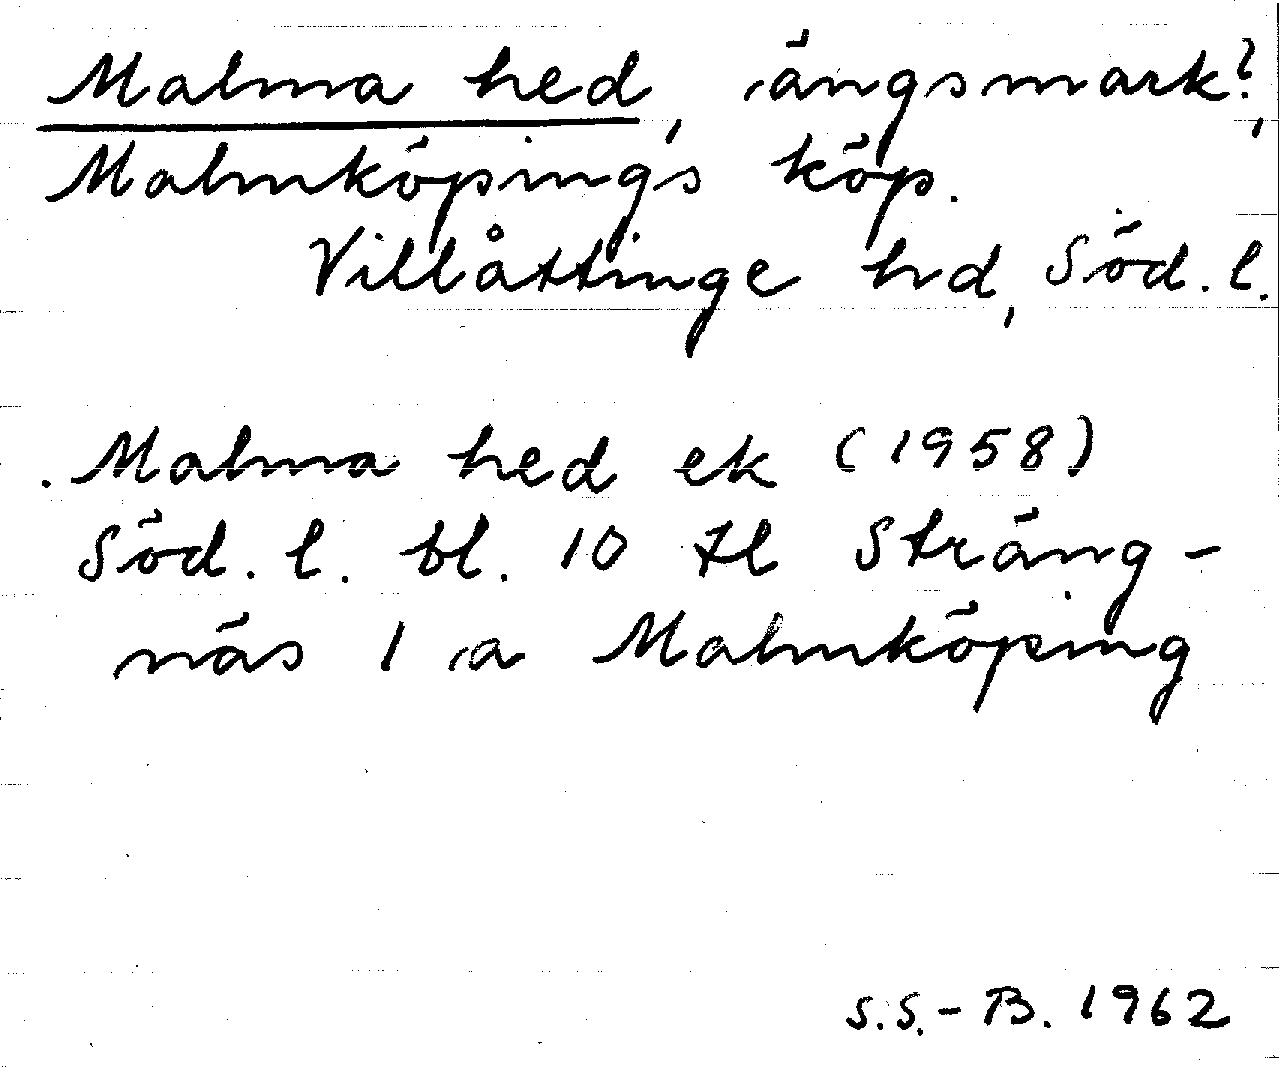 Malma hed, ängsmark?,
Malmköpings köp.
Villåttinge hd, Söd. l.
Malma hed ek (1958)
Söd. l. bl. 10 tl Sträng-
näs 1 a Malmköping
S.S.-B. 1962